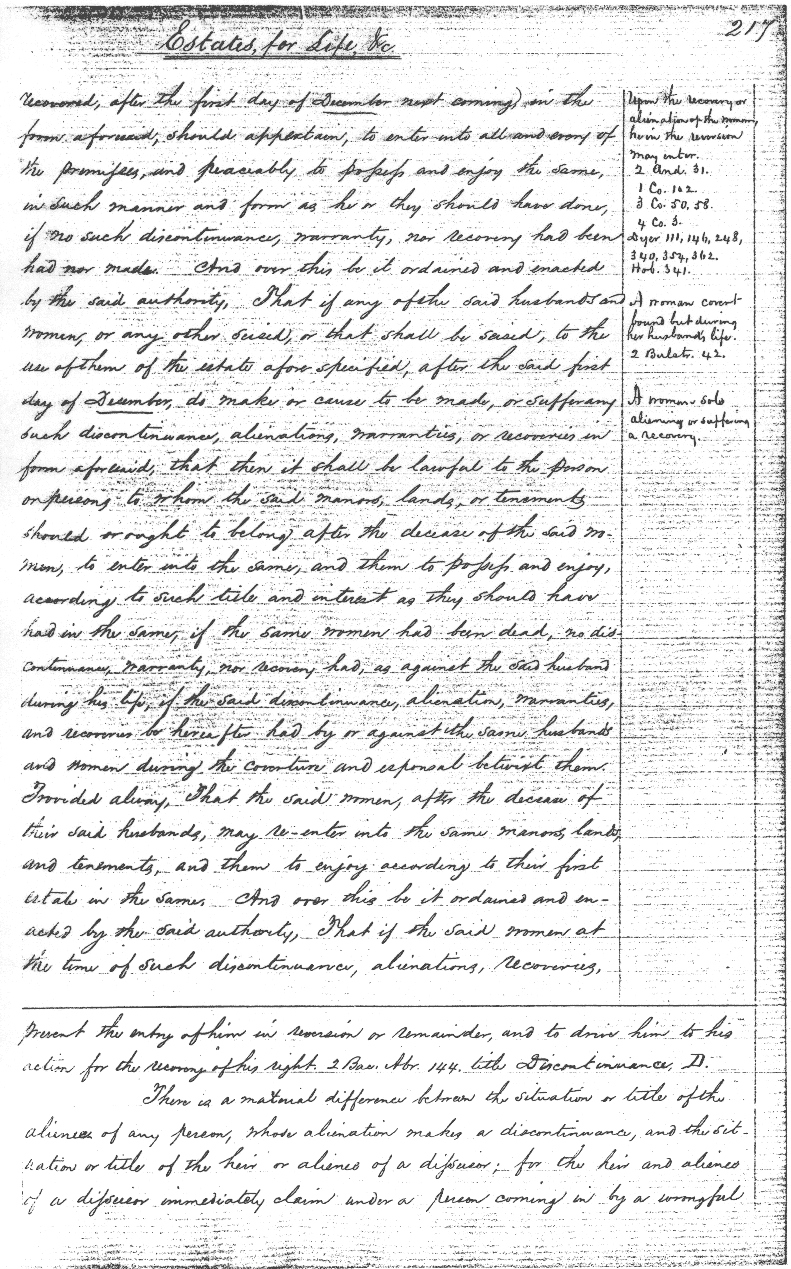 217
Estates, for Life, &c.
recovered, after the first day of December next coming) in the
form aforesaid, should appertain, to enter into all and every of
the premisses, and peaceably to possess and enjoy the same,
in such manner and form as he or they should have done,
if no such discontinuance, warranty, nor recovery had been
had nor made. And over this be it ordained and enacted
by the said authority, That if any of the said husbands and
women, or any other seised, or that shall be seised, to the
use of them of the estate afore specified, after the said first
day of December, do make or cause to be made, or suffer any
such discontinuance, alienations, warranties, or recoveries in
form aforesaid; that then it shall be lawful to the person
or persons to whom the said manors, lands, or tenements
should or ought to belong after the decease of the said wo-
men, to enter into the same, and them to possess and enjoy,
according to such title and interest as they should have
had in the same, if the same women had been dead, no dis-
continuance, warranty, nor recovery had, as against the said husband
during his life, if the said discontinuance, alienation, warranties,
and recoveries be hereafter had by or against the same husbands
and women during the coverture and espousal betwixt them.
Provided alway, That the said women, after the decease of
their said husbands, may re-enter into the same manors, lands,
and tenements, and them to enjoy according to their first
estate in the same. And over this be it ordained and en-
acted by the said authority, That if the said women at
the time of such discontinuance, alienations, recoveries,
Upon the recovery or
alienation of the woman,
he in the reversion
may enter.
2 And. 31.
1 Co. 162.
3 Co. 50, 58.
4 Co. 3.
Dyer 111, 146, 248,
340, 354, 362.
Hob. 341.
A woman covert
bound but during
her husband's life.
2 Bulstr. 42.
A woman sole
aliening or suffering
a recovery.
prevent the entry of him in reversion or remainder, and to drive him to his
action for the recovery of his right. 2 Bac. Abr. 144. title Discontinuance, D.
There is a material difference between the situation or title of the
alienee of any person, whose alienation makes a discontinuance, and the sit-
uation or title of the heir or alienee of a disseisor; for the heir and alienee
of a disseisor immediately claim under a person coming in by a wrongful